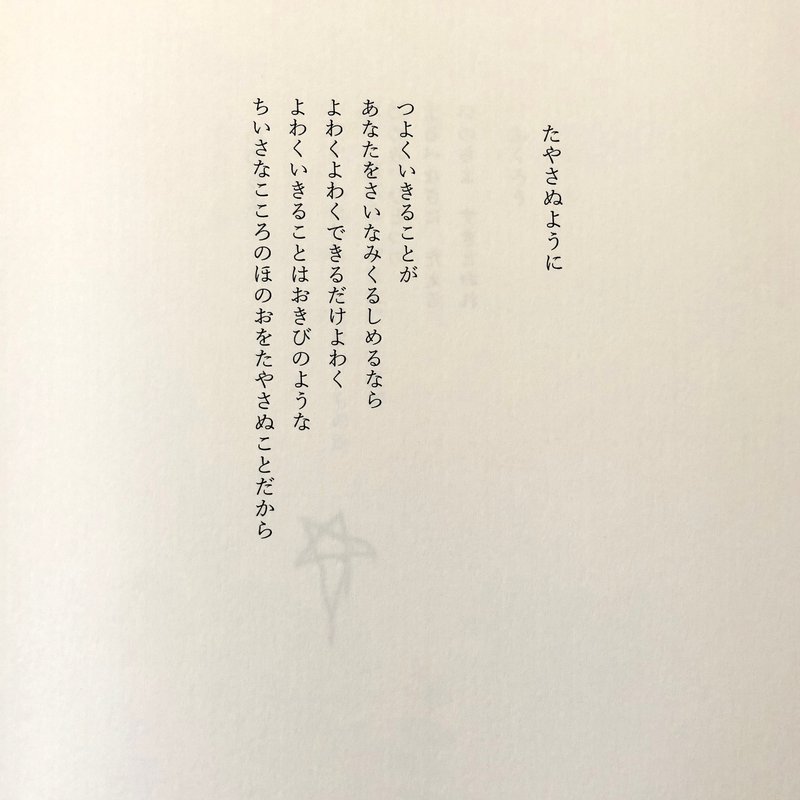 たやさぬように
つよくいきることが
あなたをさいなみくるしめるなら
よわくよわくできるだけよわく
よわくいきることはおきびのような
ちいさなこころのほのおをたやさぬことだから